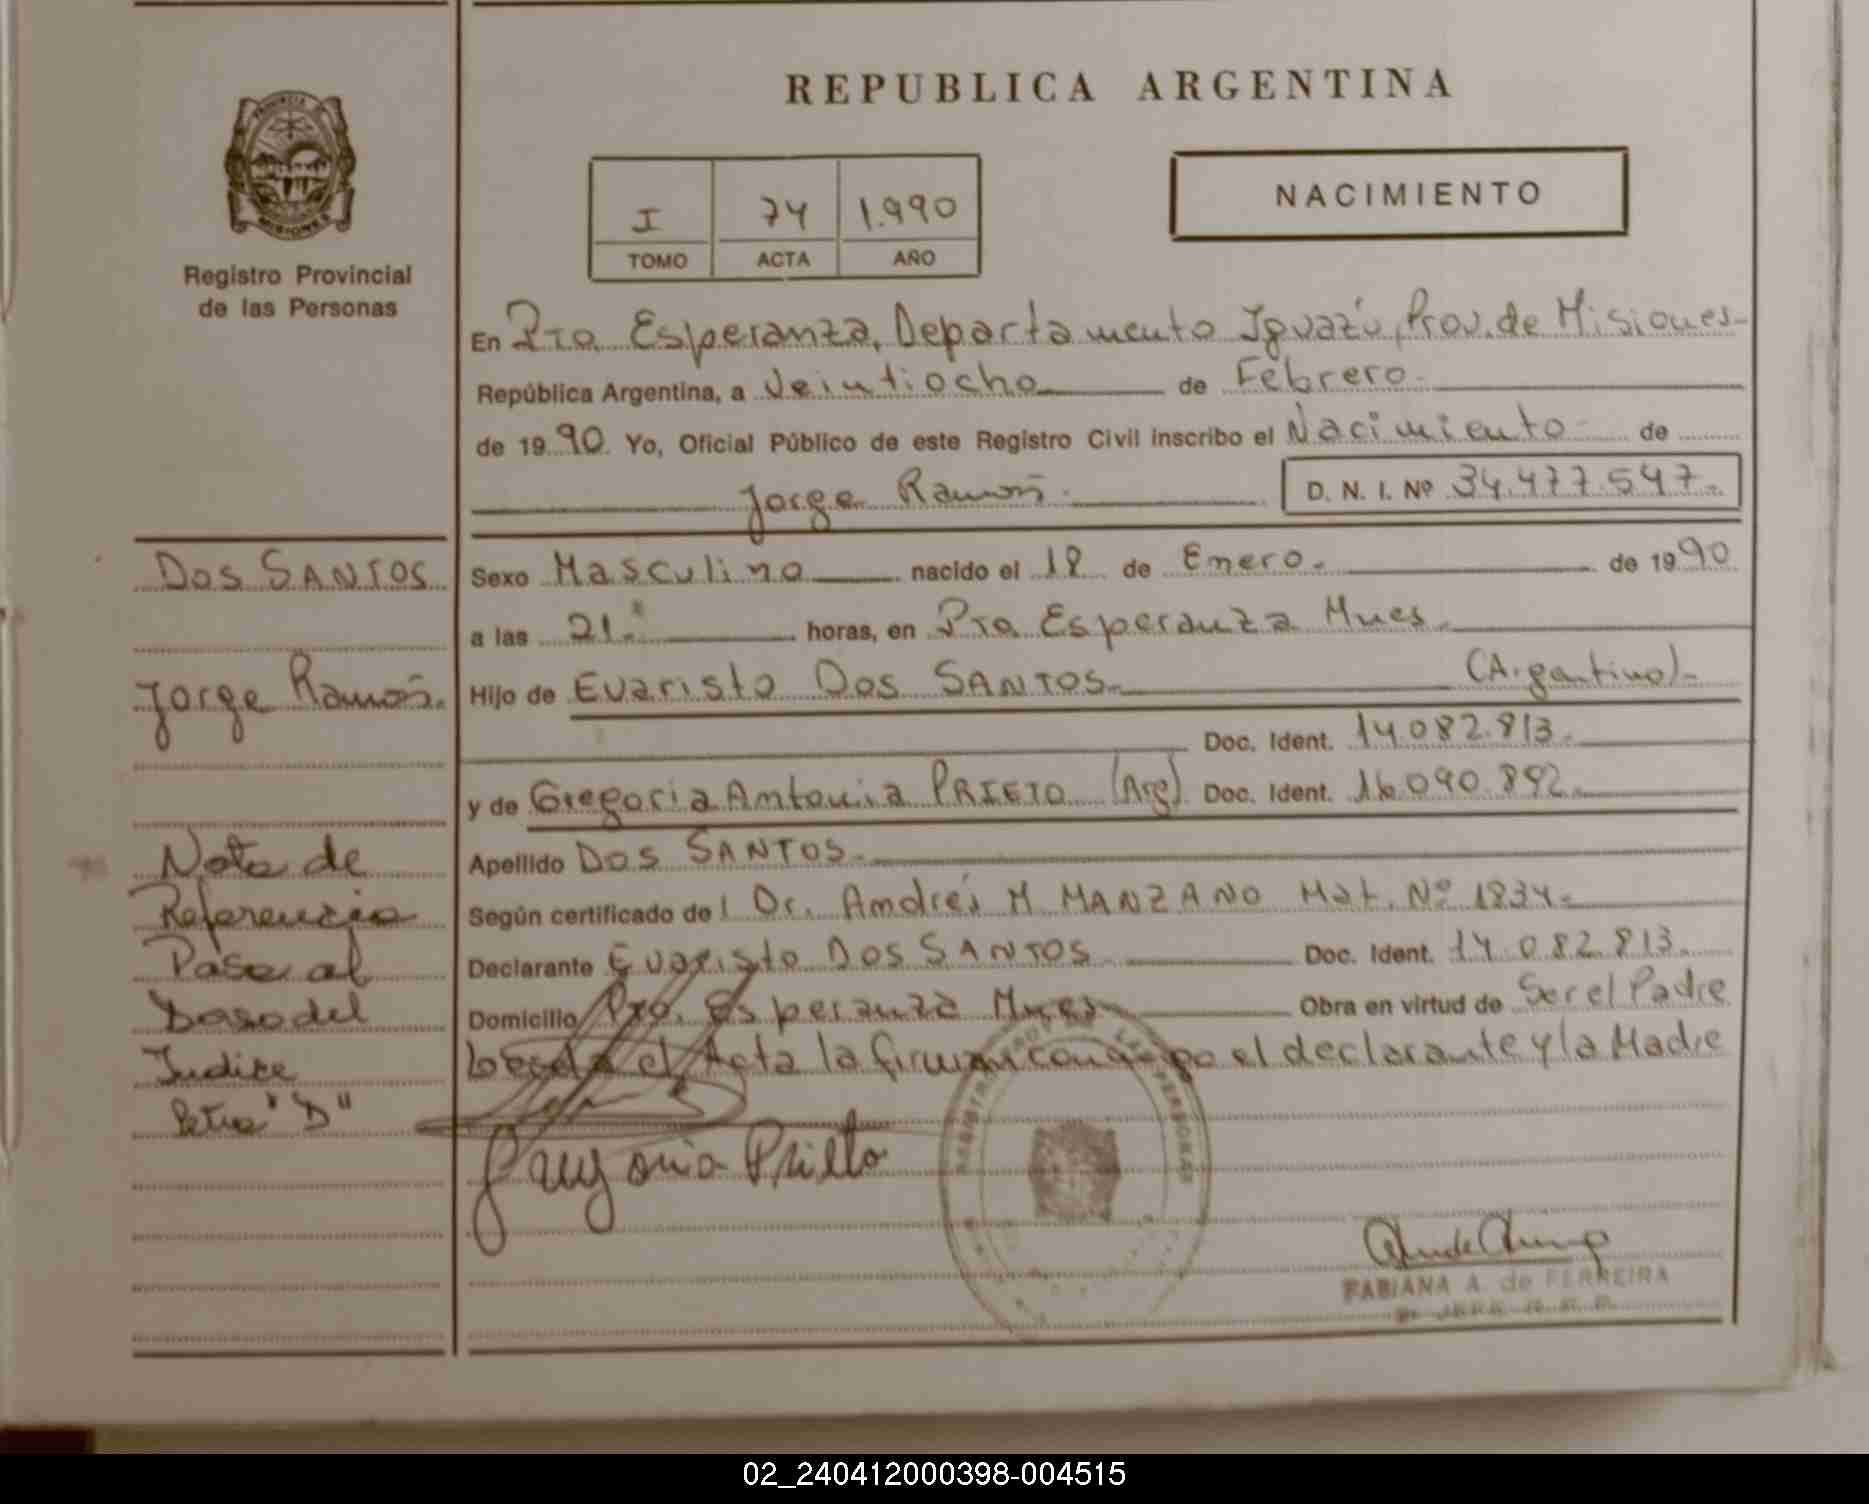 REPUBLICA ARGENTINA
PROVINCIA
MISIONES
Registro Provincial
de las Personas
I 74 1.990
TOMO ACTA AÑO
NACIMIENTO
En Pto. Esperanza, Departamento Iguazú, Prov. de Misiones-
República Argentina, a Veintiocho de Febrero.-
de 1990 Yo, Oficial Público de este Registro Civil inscribo el Nacimiento de
Jorge Ramón.
D. N. I. Nº 34.477.547.-
DOS SANTOS
Jorge Ramón.
Sexo Masculino nacido el 18 de Enero.- de 1990
a las 21.- horas, en Pto. Esperanza Mnes.
Hijo de Evaristo Dos SANTOS.- (Argentino)-
Doc. Ident. 14.082.813.-
y de Gregoria Antonia PRIETO (Arg) Doc. Ident. 16.090.892.-
Apellido DOS SANTOS.-
Según certificado de Dr. Andrés M MANZANO Mat. Nº 1834.-
Declarante Evaristo DOS SANTOS Doc. Ident. 14.082.813.
Domicilio Pto. Esperanza Mnes Obra en virtud de Ser el Padre
el Acta la firman conmigo el declarante y la Madre
Nota de
Referencia
Pase al
Dasodel
Indice
Letra "D"
Prieto
REGISTRO DE LAS PERSONAS
FABIANA A. de FERREIRA
02_240412000398-004515